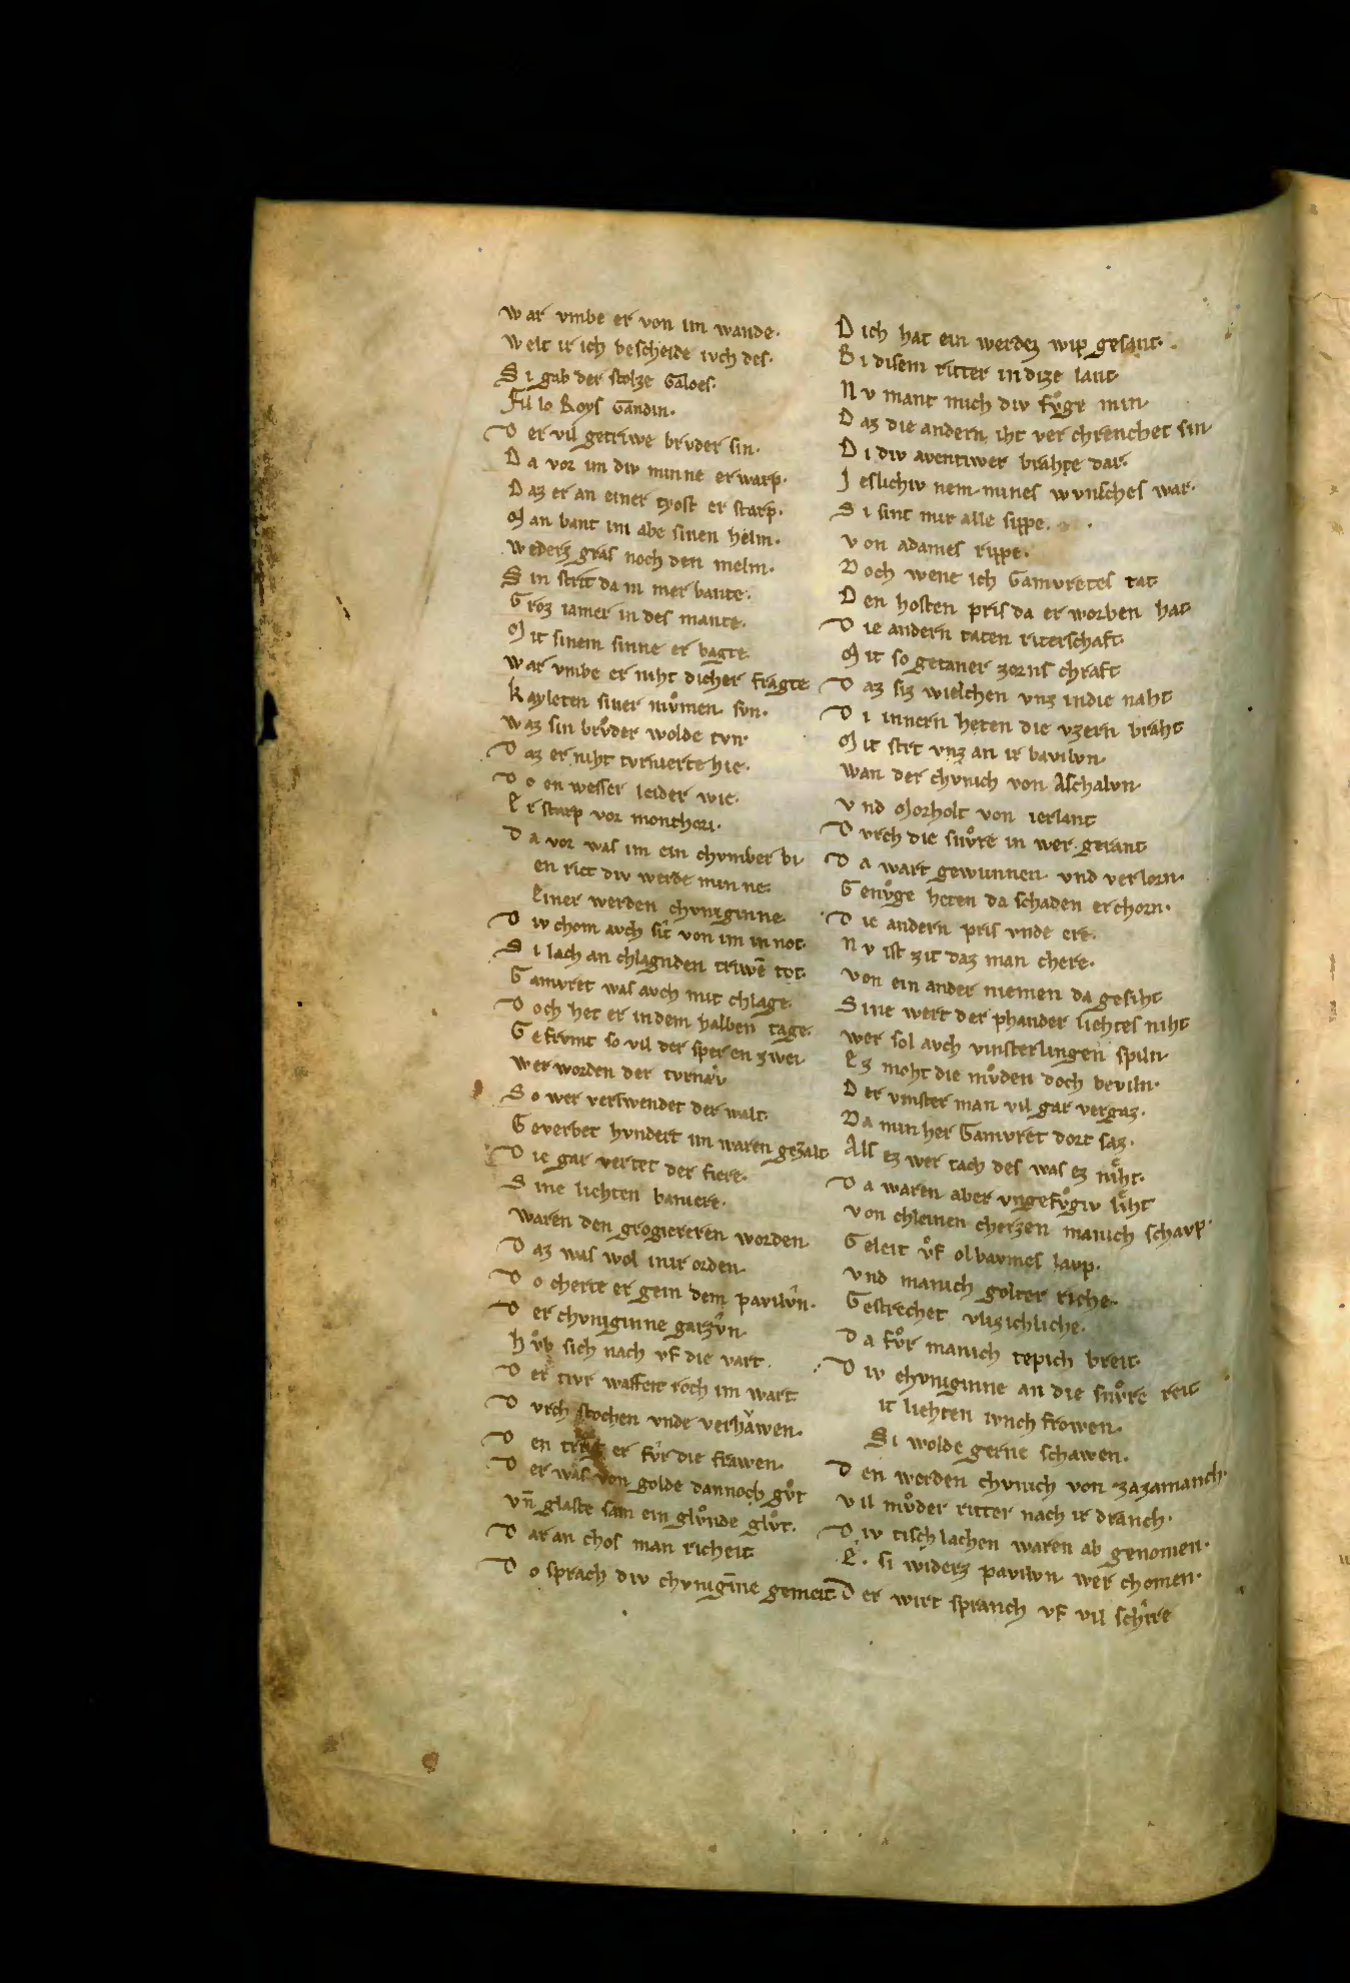 War vmbe er von im wande.
Welt ir ich bescheide ivch des.
Si gab der stolze Galoes.
Fil lo Roys Gandin.
Der vil getriwe brvder sin.
Da vor im div minne erwarp.
Daz er an einer tyost erstarp.
Man bant im abe sinen helm.
Wederz gras noch den melm.
Sin strit da ni mer bante.
Groz iamer in des mante.
Mit sinem sinne er bagte
War vmbe er niht dicher fragte
Kayleten siner mvͦmen svn.
Waz sin brvͦder wolde tvn.
Daz er niht tvrnierte hie.
Do en wesser leider wie.
Er starp vor monthori.
Da vor was im ein chvmber bi
en riet div werde minne.
Einer werden chvniginne.
Div chom avch sit von im in not.
Si lach an chlagnden triwē tot.
Gamvret was avch mit chlage.
Doch het er in dem halben tage.
Gefrvmt so vil der sper en zwei
Wer worden der tvrnai
So wer verswendet der walt.
Geverbet hvndert im waren gezalt
Die gar vertet der fiere.
Sine liehten baniere.
Waren den grogiereren worden.
Daz was wol inir orden.
Do cherte er gein dem pavilvn.
Der chvniginne garzvn.
Hvͦb sich nach vf die vart.
Der tivr waffen roch im wart
Dvrch stochen vnde verhawen.
Den trvͦg er fvr die frawen.
Der was von golde dannoch gvͦt
Vn̄ glaste sam ein glvͦnde glvͦt.
Dar an chos man richeit
Do sprach div chvnigīne gemeit.
Dich hat ein werdez wip gesant.
Bi disem ritter in dize lant
Nv mant mich div fvͦge min.
Daz die andern iht verchrenchet sin.
Di div aventiwer brahte dar.
Jeslichiv nem mines wvnsches war.
Si sint mir alle sippe.
Von adames rippe.
Doch wene ich Gamvretes tat
Den hosten pris da erworben hat
Die andern taten riterschaft
Mit so getaner zorns chraft
Daz siz wielchen vnz in die naht
Di innern heten die vzern braht
Mit strt vnz an ir bavilvn.
Wan der chvnich von Aschalvn.
Vnd Morholt von ierlant
Dvrch die snvͦre in wer gerant
Da wart gewunnen vnd verlorn.
Genvͦge heten da schaden erchorn.
Die andern pris vnde ere.
Nv ist zit daz man chere.
Von ein ander niemen da gesiht
Sine wert der phander liehtes niht
Wer sol avch vinsterlingen spiln
Ez moht die mvͦden doch beviln.
Der vinster man vil gar vergaz.
Da min her Gamvret dort saz.
Als ez wer tach des was ez niht.
Da waren aber vngefvͦgiv liht
Von chleinen cherzen manich scharp.
Geleit vͦf olbavmes lavp.
Vnd manich golter riche.
Gestrechet vlizichliche.
Da fvͦr manich tepich breit.
Div chvniginne an die snvͦre reit
it liehten ivnch frowen.
Si wolde gerne schawen.
Den werden chvnich von zazamanch.
Vil mvͦder ritter nach ir dranch.
Div tischlachen waren ab genomen.
E. si widerz pavilvn wer chomen.
Der wirt spranch vf vil schire